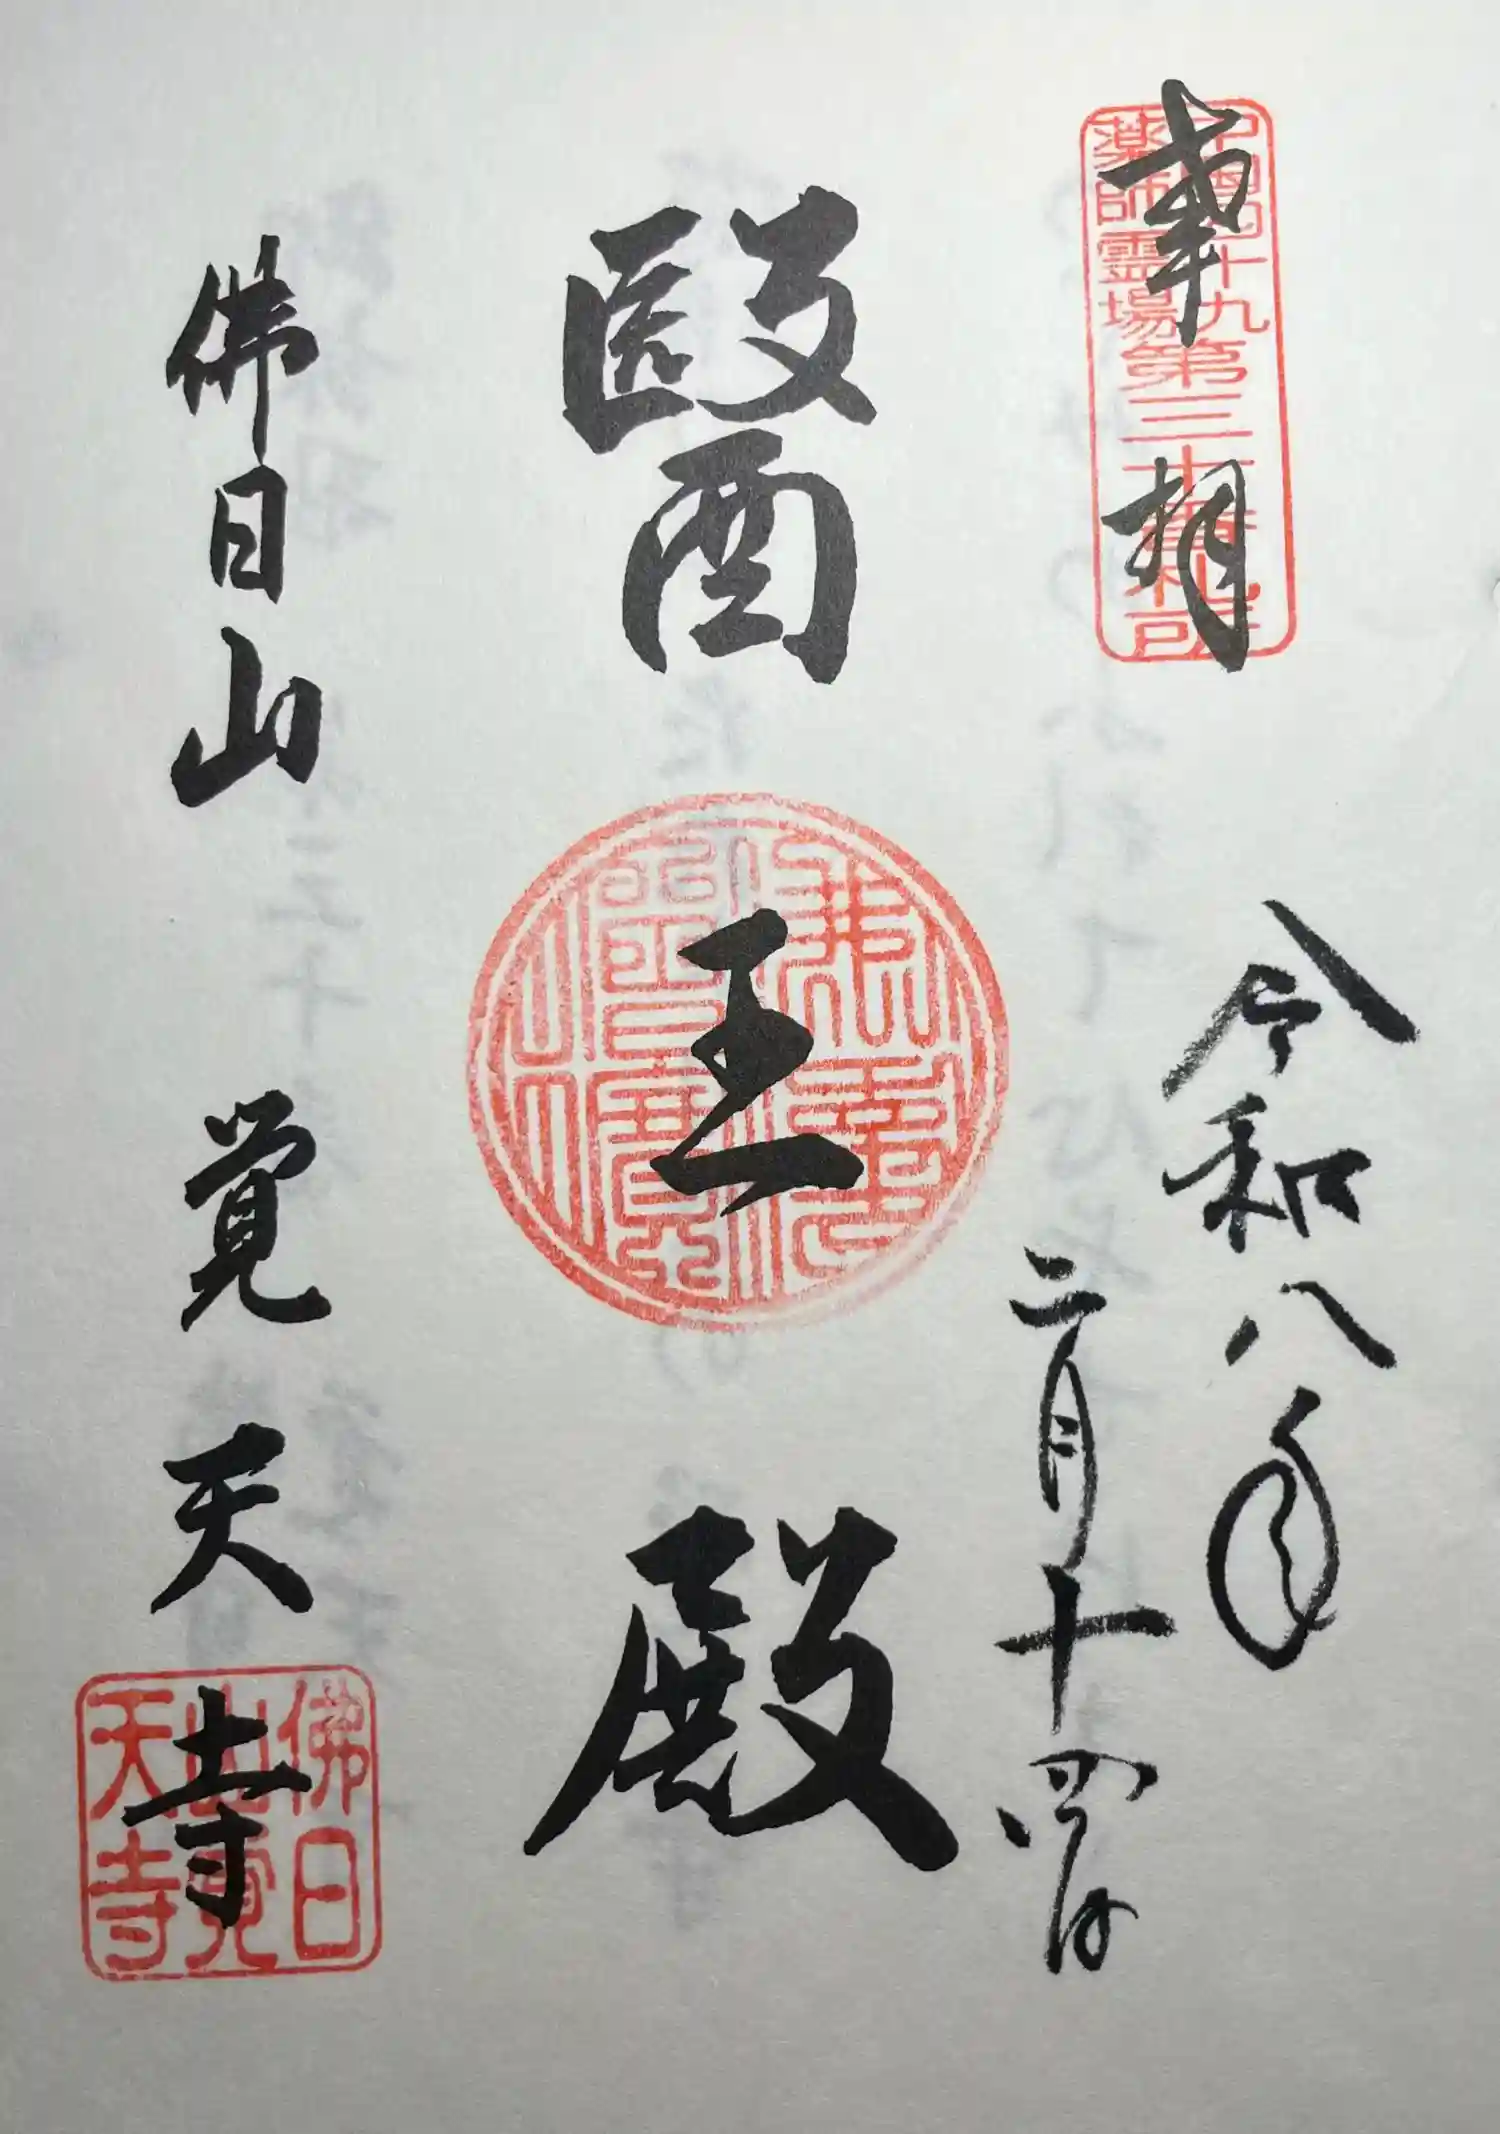 奉拝
中国四十九
薬師霊場
第三十番札所
令和八年
二月十四日
醫王殿
佛法僧寶
佛日山
覚天寺
佛日
山覺
天寺